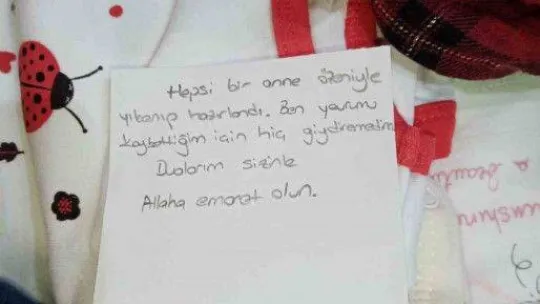 Hepsi bir anne özeniyle
yıkanıp hazırlandı. Ben yavrumu
kaybettiğim için hiç giydiremedim
Dualarım sizinle
Allaha emanet olun.
a beauti
unshin